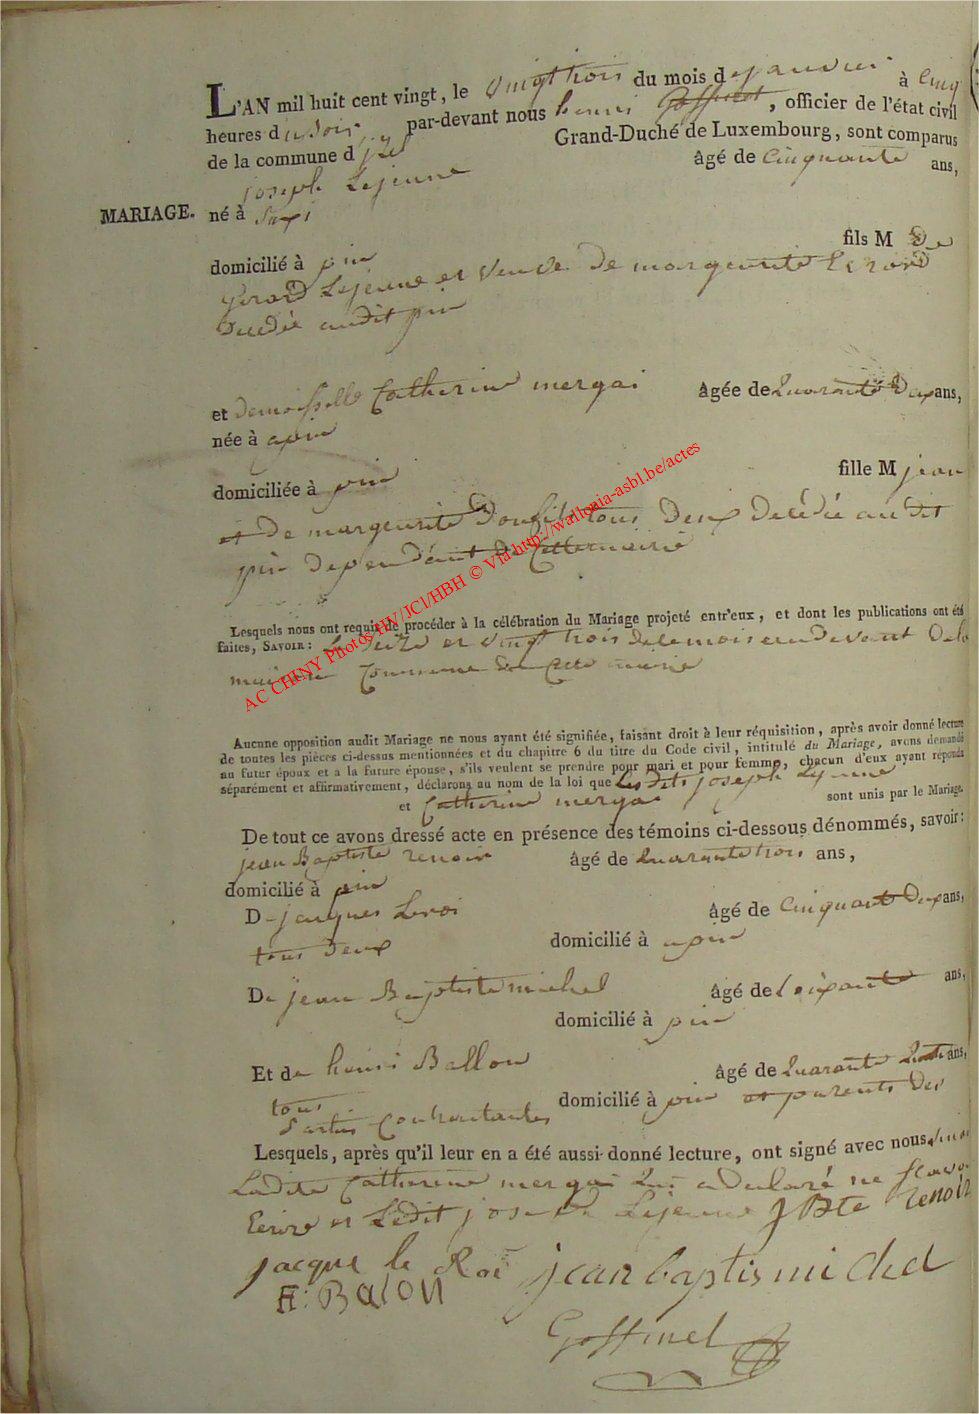 L'AN mil huit cent vingt, le vingt trois du mois de janvier à Cinq
heures du soir par-devant nous henri Goffinet, officier de l'état civil
de la commune d jzel Grand-Duché de Luxembourg, sont comparus
joseph Lejeune âgé de Cinquante ans,
MARIAGE. né à
domicilié à pin fils M De
Gerard Lejeune et veuve De marguerite Evrard
Decedée audit pin
et demoiselle Catherine mergai âgée de Quarante Deux ans,
née à apin
domiciliée à pin fille M jean
et De marguerite tous Deux Decédé au dit
pin Dependant De Cette mairie
Lesquels nous ont requis de procéder à la célébration du Mariage projeté entr'eux, et dont les publications ont été
faites, SAVOIR: Le Seize et vingt trois de le mois au devant De la
Commune De Cette mairie
Aucune opposition audit Mariage ne nous ayant été signifiée, faisant droit à leur réquisition, après avoir donné lecture
de toutes les pièces ci-dessus mentionnées et du chapitre 6 du titre du Code civil, intitulé du Mariage, avons demandé
au futur époux et à la future épouse, s'ils veulent se prendre pour mari et pour femme, chacun d'eux ayant répondu
séparément et affirmativement, déclarons au nom de la loi que Les Dits joseph Lejeune
et Catherine mergai sont unis par le Mariage.
De tout ce avons dressé acte en présence des témoins ci-dessous dénommés, savoir:
jean Baptiste renoir âgé de Quarante trois ans,
domicilié à pin
De jacques Leroi âgé de Cinquante Deux ans,
tous Deux domicilié à apin
De jean Baptiste michel âgé de Soixante ans,
domicilié à pin
Et de henri Ballon âgé de Quarante Quatre ans,
tous domicilié à pin et parents Des
Parties Contractantes
Lesquels, après qu'il leur en a été aussi donné lecture, ont signé avec nous, sinon
Ladite Catherine mergai Qui a Declaré ne scavoir
Ecrire et Ledit joseph Lejeune J Bte Renoir
jacque le Roi jean baptis michel
H: BalON
Goffinet
AC CHINY Photos HW/JCl/HBH © Via http://wallonia-asbl.be/actes